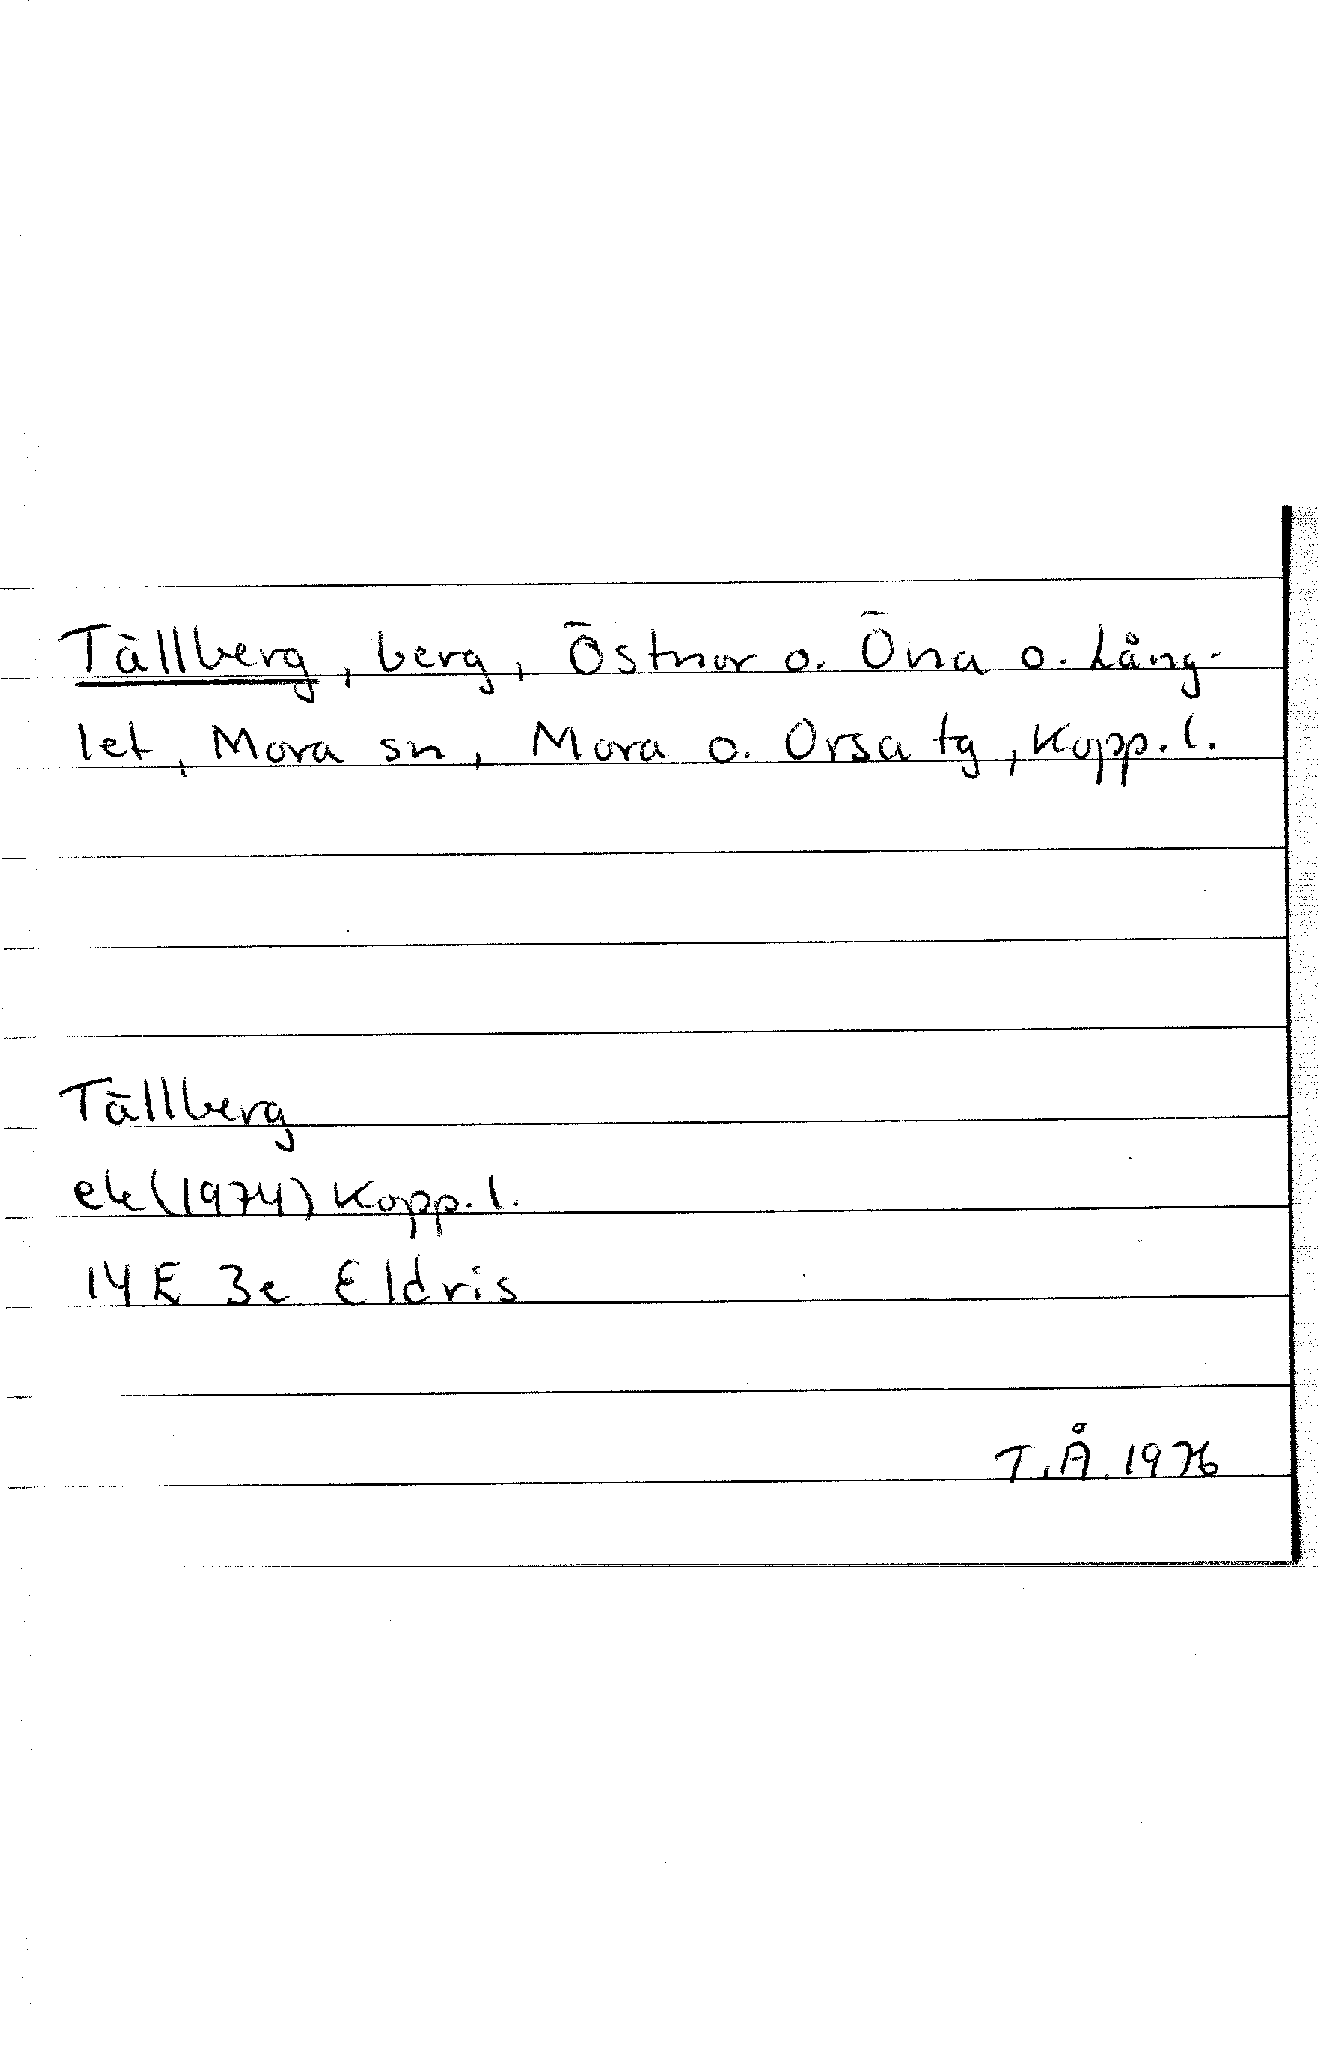 Tällberg, berg, Östnor o. Öna o. Lång-
let, Mora sn, Mora o. Orsa tg, Kopp. l.
Tällberg
ek (1974) Kopp. l.
14 E 3e Eldris
T.Å. 1976